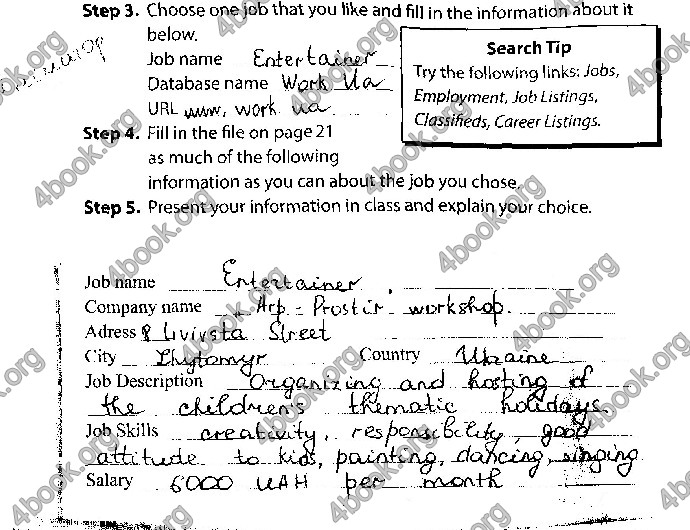 Step 3. Choose one job that you like and fill in the information about it
below.
Job name Entertainer
Database name Work Ua
URL www. work. ua
Search Tip
Try the following links: Jobs,
Employment, Job Listings,
Classifieds, Career Listings.
Step 4. Fill in the file on page 21
as much of the following
information as you can about the job you chose.
Step 5. Present your information in class and explain your choice.
Job name Entertainer
Company name Arp - Prostir workshop.
Adress 8 Livivsta Street
City Zhytomyr Country Ukraine
Job Description Organizing and hosting of
the children's thematic holidays.
Job Skills creativity, responsibility, good
attitude to kids, painting, dancing, singing
Salary 6000 UAH per month
4book.org